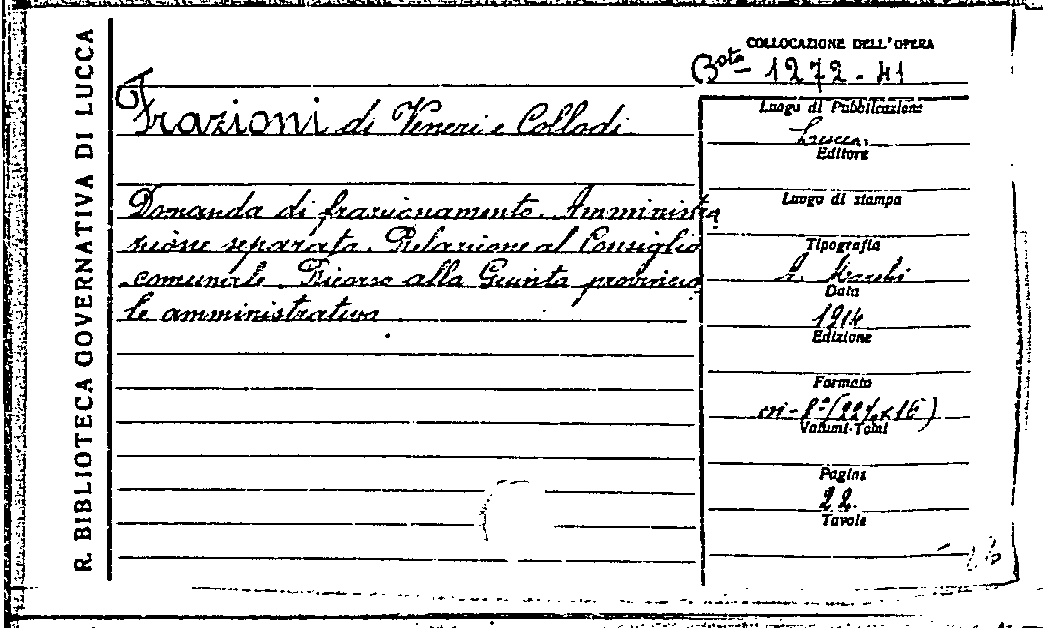 R. BIBLIOTECA GOVERNATIVA DI LUCCA
COLLOCAZIONE DELL'OPERA
1272 - 41
Frazioni di Veneri e Collodi
Domanda di frazionamento. Amministra
zione separata. Relazione al Consiglio
comunale. Ricorso alla Giunta provincia
le amministrativa
Luogo di Pubblicazione
Lucca
Editore
Luogo di stampa
Tipografia
A. Marchi
Data
1914
Edizione
Formato
in-8° (22½ x 16)
Volumi-Tomi
Pagine
22.
Tavole